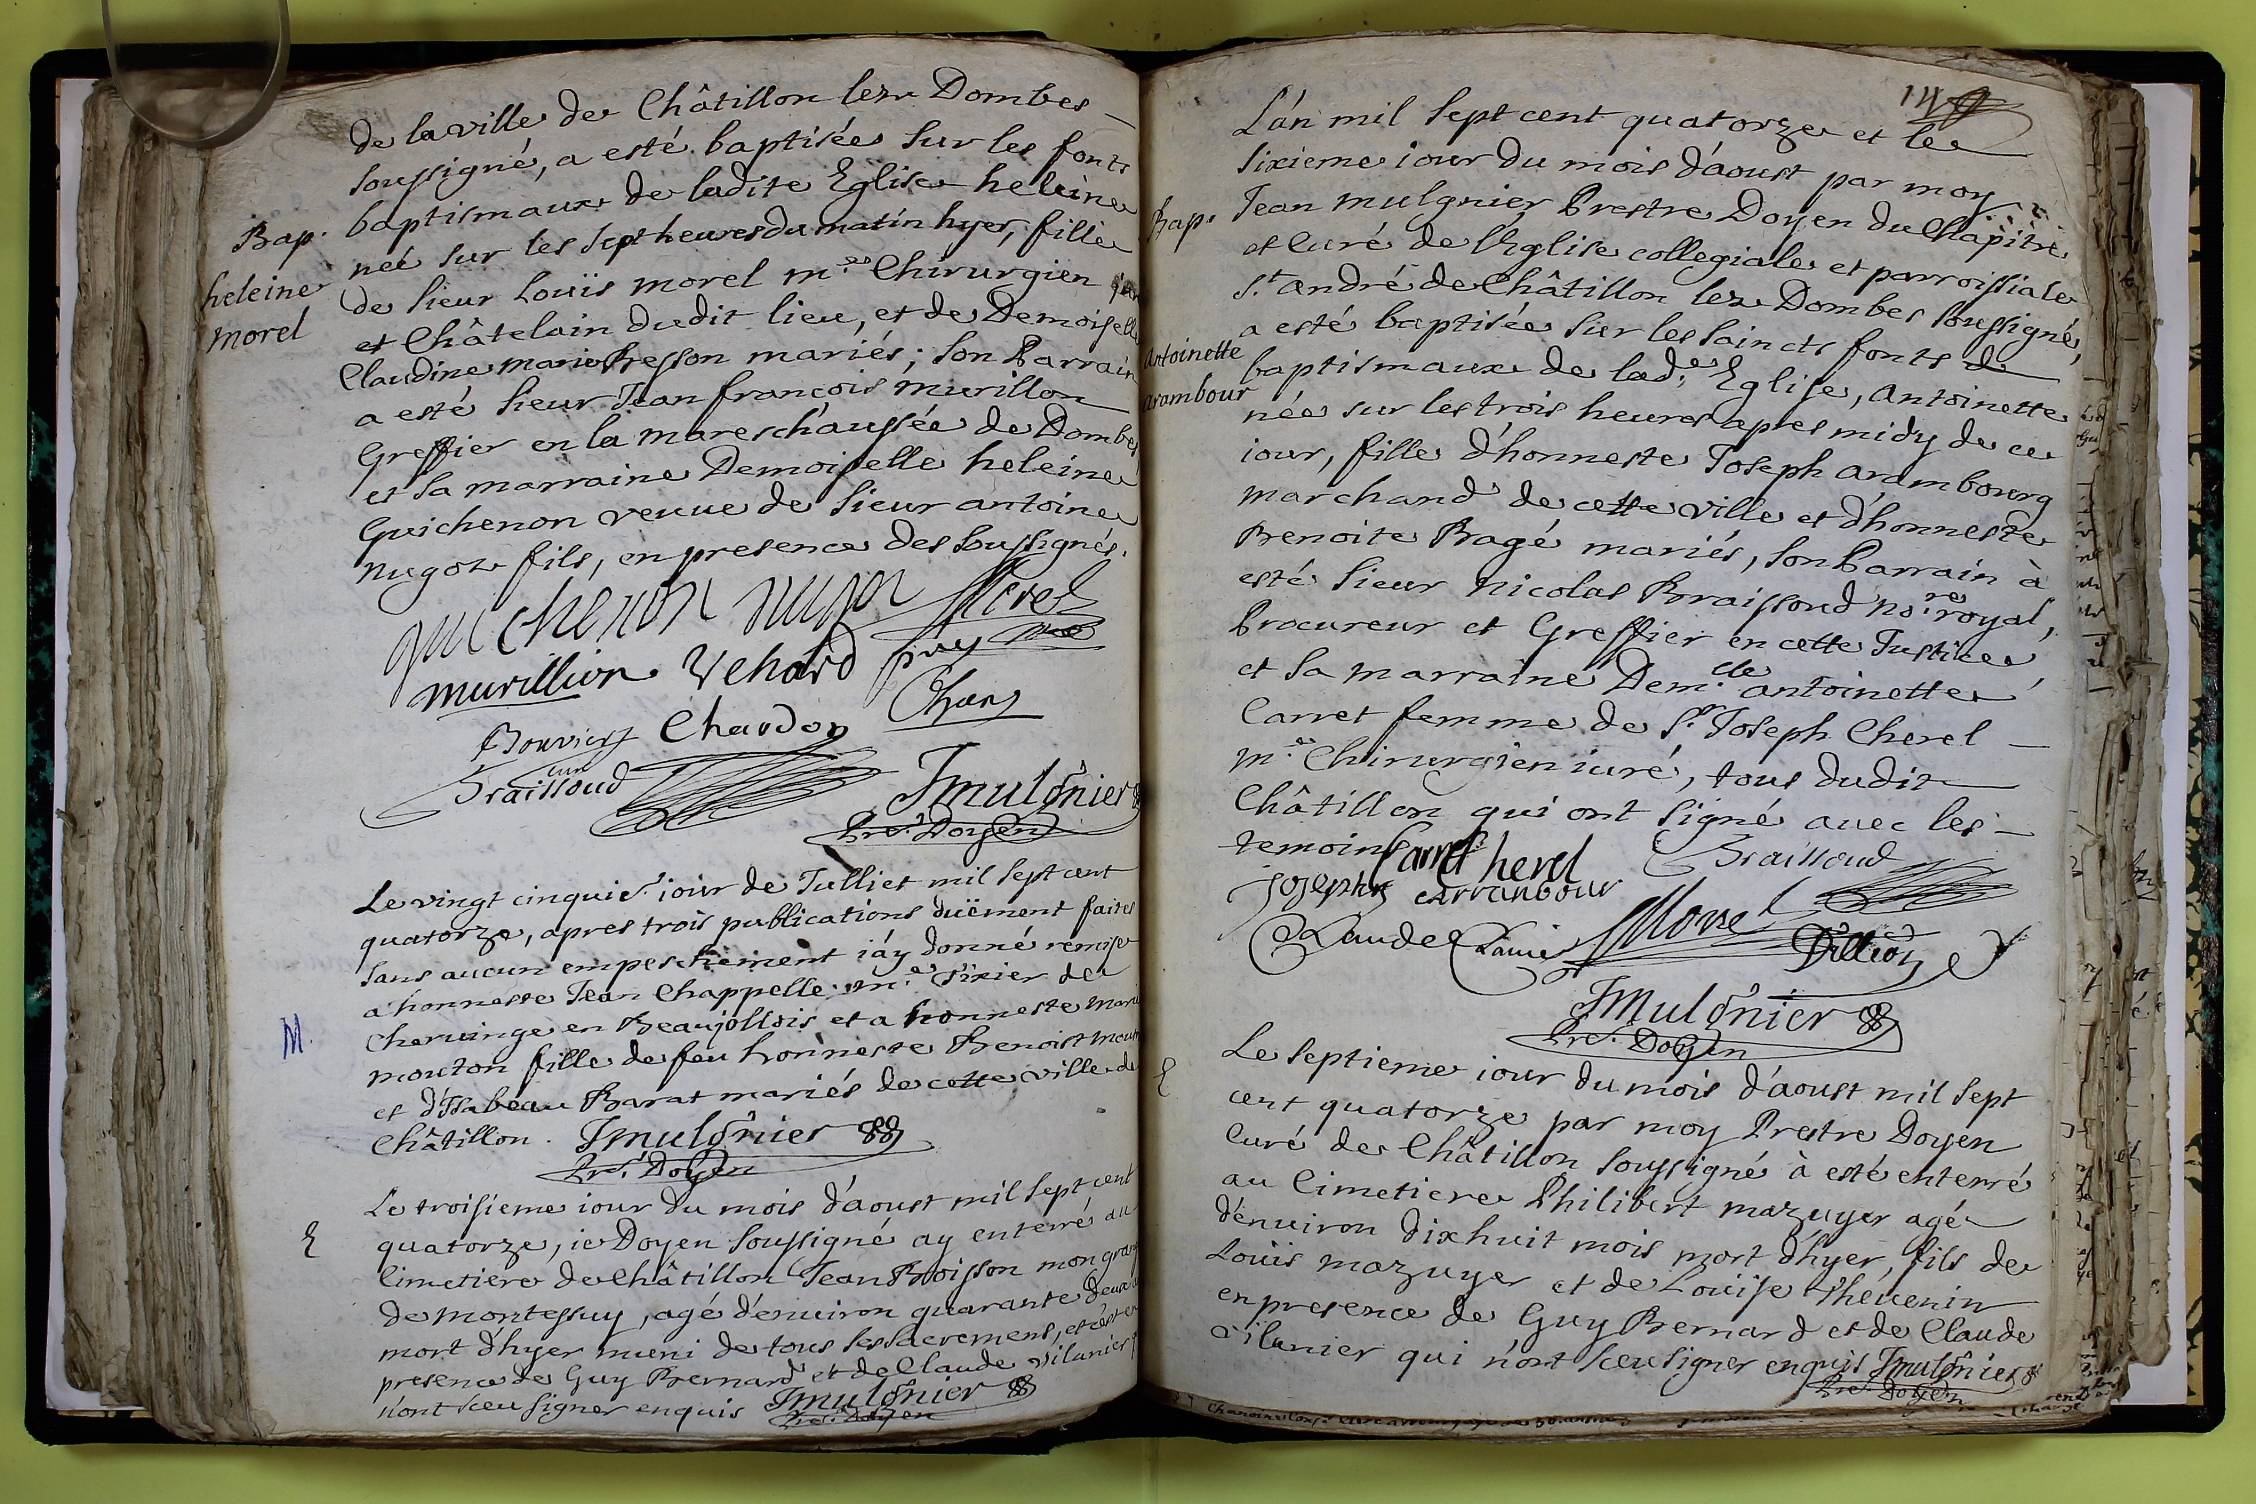 de la ville de Châtillon lez Dombes
soussigné, a esté baptisée sur les fonts
baptismaux de ladite Eglise heleine
Bap. née sur les sept heures du matin hyer, fille
heleine de sieur Loüis morel m.re Chirurgien
morel et Châtelain dudit lieu, et de Demoiselle
Claudine marie Presson mariés; son Parrain
a esté sieur Jean françois murillon
Greffier en la mareschaussée de Dombes
et sa marraine Demoiselle heleine
Guichenon veuue de sieur antoine
nugoz fils, en presence des soussignés.
guichenon nugoz Morel
murillion Vehard puy
Bouvier Chardon Chan
Braissoud Jmulgnier
Pre. Doyen
Le vingt cinquie. iour de Julliet mil sept cent
quatorze, apres trois publications duëment faites
sans aucun empeschement i'ay donné remise
a honneste Jean Chappelle m.e Tixier de
M. Cheruinge en Beaujollois et a honneste marie
mouton fille de feu honneste Benoist mouton
et d'Isabeau Barat mariés de cette ville de
Châtillon. Jmulgnier
Pre. Doyen
Le troisieme iour du mois d'aoust mil sept cent
E quatorze, ie Doyen soussigné ay enterré au
Cimetiere de Châtillon Jean Broisson mon granger
de montessuy, agé d'enuiron quarante deux
mort d'hyer muni de tous ses sacremens, et c'est en
presence de Guy Bernard et de Claude vilunier
n'ont sceu signer enquis Jmulgnier
Pre. Doyen
14
L'an mil sept cent quatorze et le
sixieme iour du mois d'aoust par moy
Bap. Jean mulgnier Prestre Doyen du Chapitre
et Curé de l'Eglise collegiale et parroissiale
S.t andré de Châtillon lez Dombes soussigné,
Antoinette a esté baptisée sur les saincts fonts
arambour baptismaux de lad.e Eglise, antoinette
née sur les trois heures apres midy de ce
iour, fille d'honneste Joseph arambourg
marchand de cette ville et d'honneste
Benoite Bagé mariés, son Parrain à
esté sieur nicolas Braissoud no.re royal,
Procureur et Greffier en cette Justice,
et sa marraine Dem.elle antoinette
Carret femme de S.r Joseph Cherel
m.e Chirurgien iuré, tous dudit
Châtillon qui ont signé auec les
temoins Carret herel Braissoud
Josephz Arranbour
Claude Morel Villion
JMulgnier
Pre. Doyen
E Le septieme iour du mois d'aoust mil sept
cent quatorze par moy Prestre Doyen
Curé de Châtillon soussigné à esté enterré
au Cimetiere Philibert mazuyer agé
d'enuiron dixhuit mois mort d'hyer, fils de
Loüis mazuyer et de Loüise Theuenin
en presence de Guy Bernard et de Claude
vilunier qui n'ont sceu signer enquis Jmulgnier
Pre. Doyen